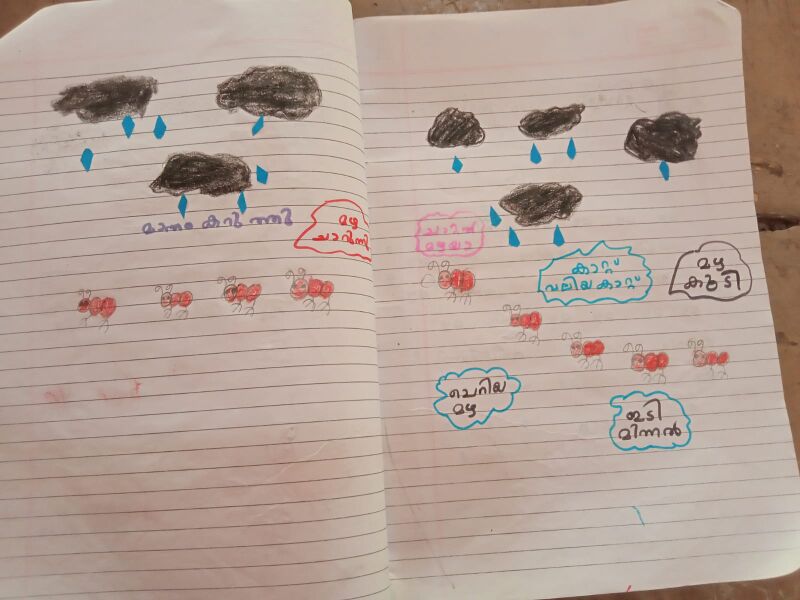 മാനം കറുത്തു
മഴ
ചാറുന്നു
ചാറൽ
മഴയാ
കാറ്റ്
വലിയകാറ്റ്
മഴ
കൂടി
ചെറിയ
മഴ
ഇടി
മിന്നൽ